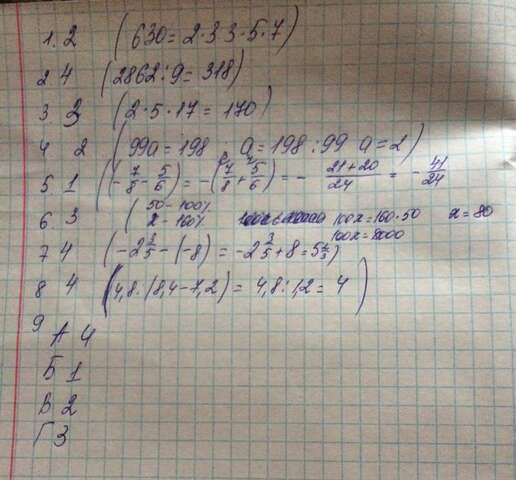 1. 2 (630 = 2·3 3·5·7)
2 4 (2862:9 = 318)
3 3 (2·5·17 = 170)
4 2 (99a = 198 a = 198:99 a = 2)
5 1 (-7/8 - 5/6) = -(7/8 + 5/6) = - 21+20/24 = - 41/24
6 3 ( 50 - 100%
x - 160% 100x = 160·50 x = 80
100x = 8000
7 4 (-2 3/5 - (-8) = -2 3/5 + 8 = 5 2/5)
8 4 (4,8:(8,4-7,2) = 4,8:1,2 = 4)
9 А 4
Б 1
В 2
Г 3